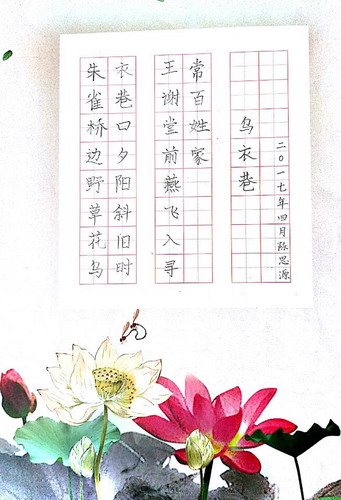 朱雀桥边野草花乌
衣巷口夕阳斜旧时
王谢堂前燕飞入寻
常百姓家
乌衣巷
二0一七年四月陈思源